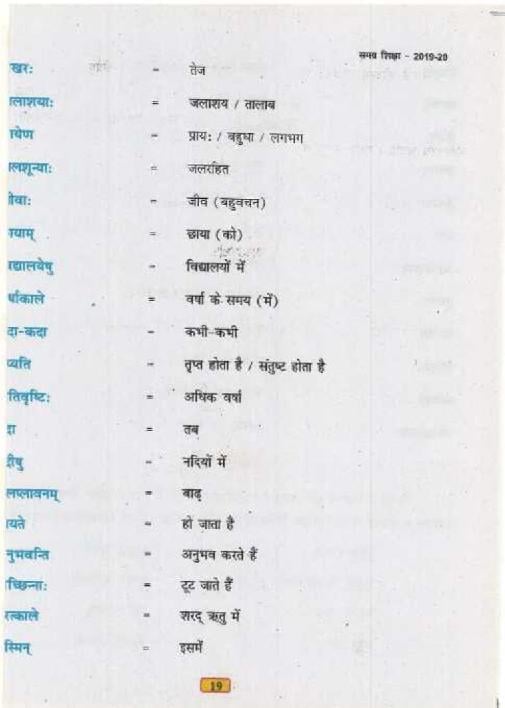 समग्र शिक्षा - 2019-20
खरः = तेज
लाशयाः = जलाशय / तालाब
ायेण = प्रायः / बहुधा / लगभग
लशून्याः = जलरहित
ीवाः = जीव (बहुवचन)
ायाम् = छाया (को)
द्यालयेषु = विद्यालयों में
र्षाकाले = वर्षा के समय (में)
दा-कदा = कभी-कभी
प्यति = तृप्त होता है / संतुष्ट होता है
तिवृष्टिः = अधिक वर्षा
दा = तब
दीषु = नदियों में
लप्लावनम् = बाढ़
ायते = हो जाता है
नुभवन्ति = अनुभव करते हैं
च्छिन्नाः = टूट जाते हैं
रत्काले = शरद् ऋतु में
स्मिन् = इसमें
19